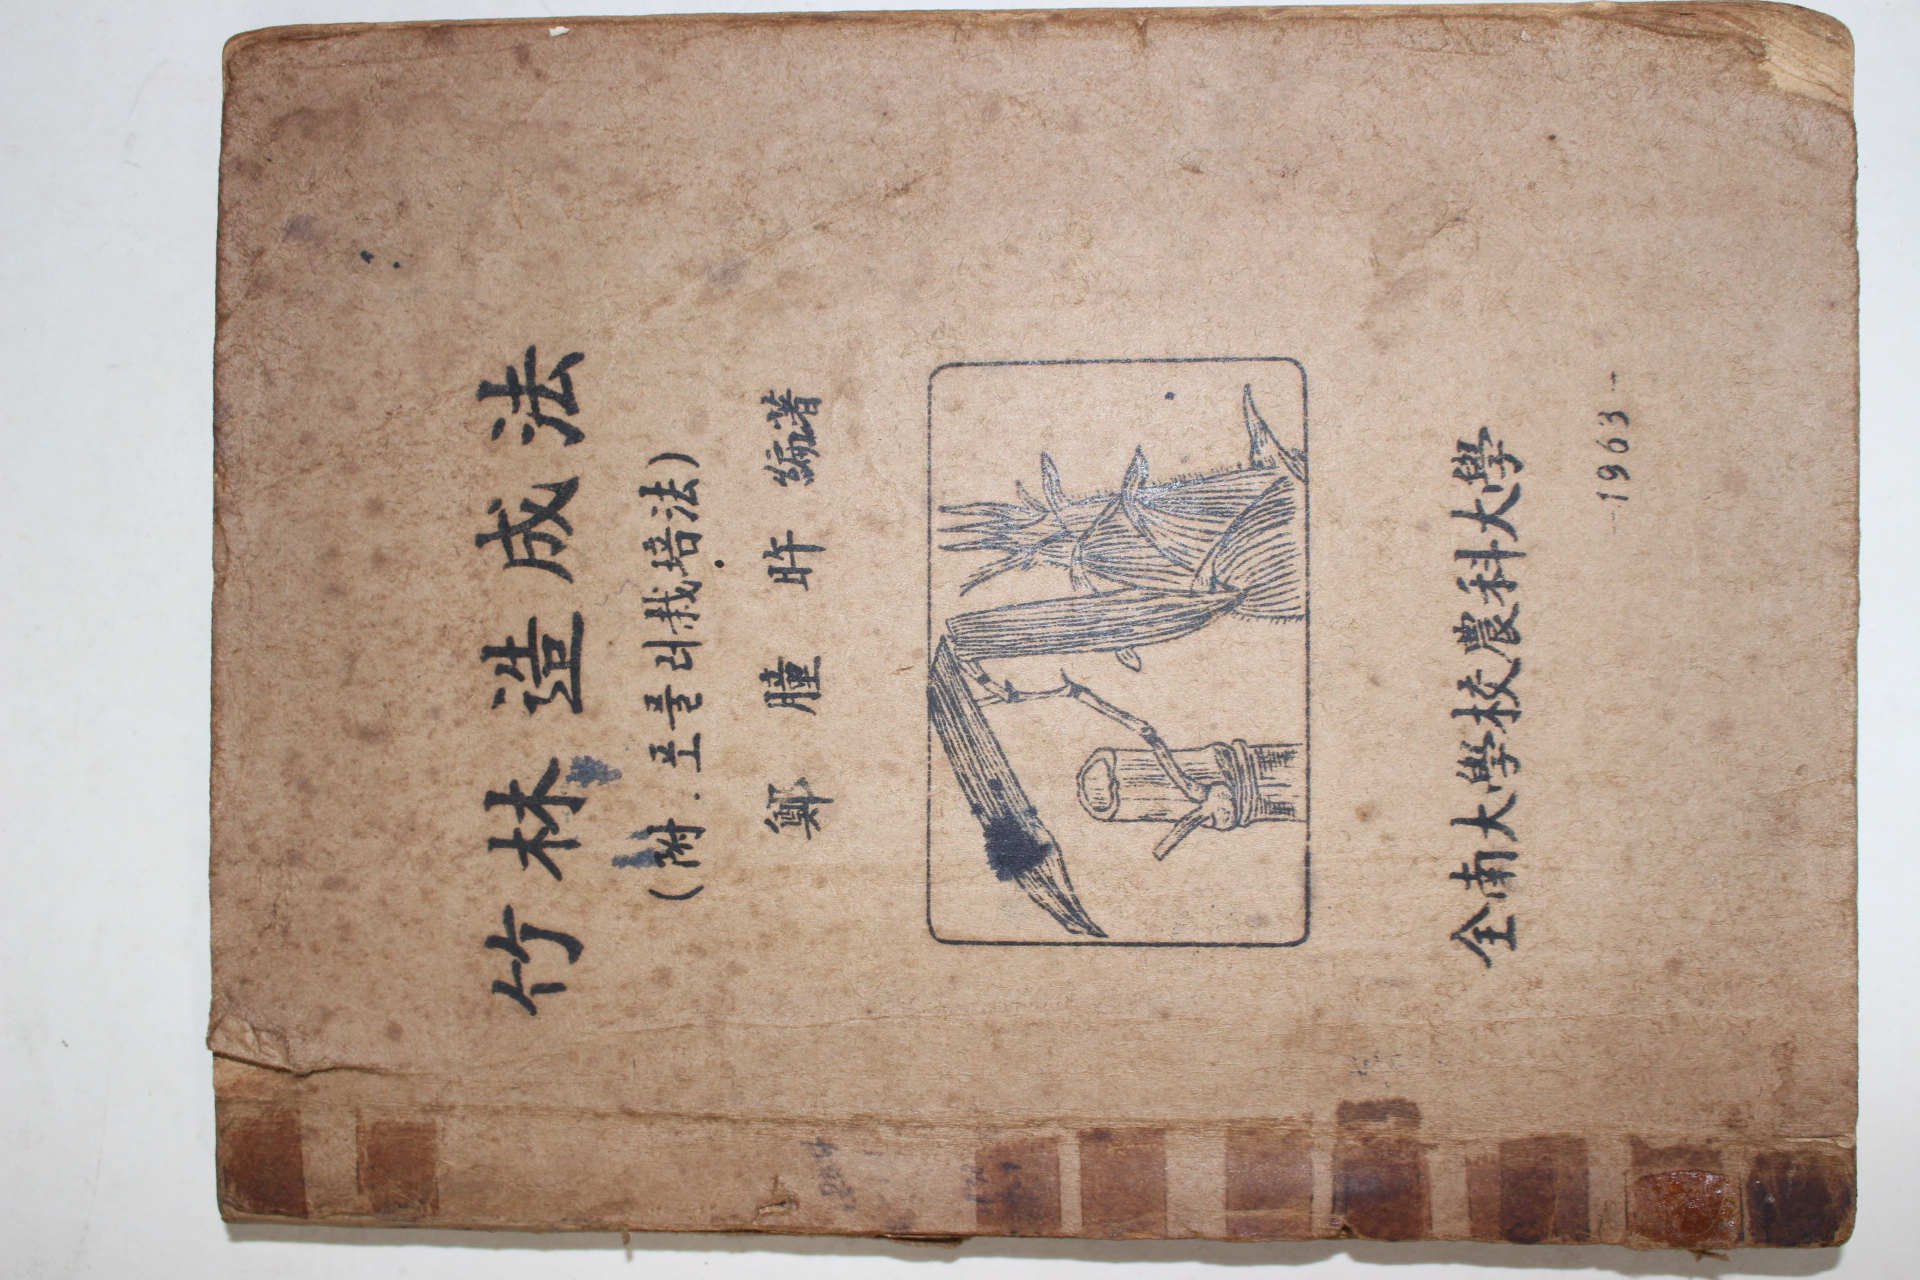 竹林造成法
(附. 포플러栽培法)
鄭 朣 旿 編著
全南大學校農科大學
-1963-